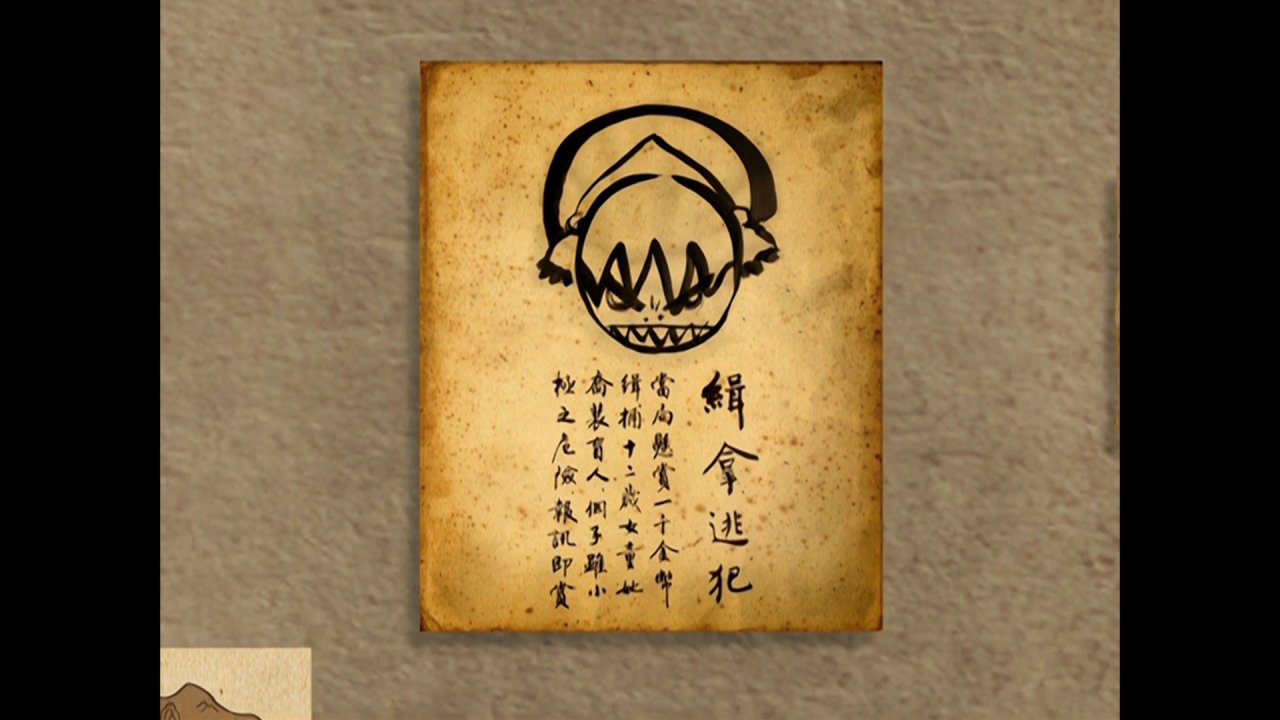 緝拿逃犯
當局懸賞一千金幣
緝捕十二歲女童她
喬裝盲人個子雖小
極之危險報訊即賞